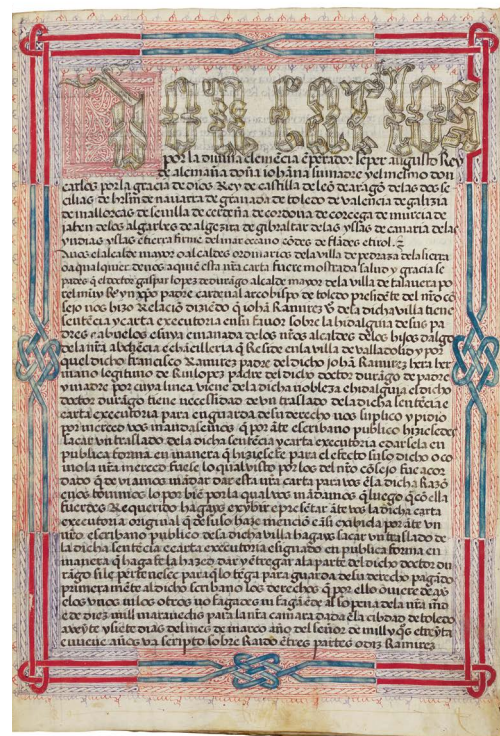 Don carlos
por la divina clemẽcia ẽperador sẽper augusto Rey
de alemaña doña iohãna su madre y el mesmo don
carlos por la gracia de dios Rey de castilla de leõ de aragõ de las dos se
cilias de hrl̃m de navarra de granada de toledo de valencia de galizia
de mallorcas de sevilla de cerdeña de cordova de corcega de murcia de
jahen de los algarbes de algezira de gibraltar de las yslas de canaria de las
yndias yslas e tierra firme del mar oceano cõdes de flãdes e tirol
vos el alcalde mayor o alcaldes ordinarios de la villa de pedraza de la sierra
o a qualquier de vos a quiẽ esta nr̃a carta fuere mostrada salud y gracia se
pades q̃ el doctor gaspar lopez de durãgo alcalde mayor de la villa de talavera po
r el muy Rev yn xp̃o padre cardenal arçobispo de toledo presidẽte del nr̃o cõ
sejo nos hizo Relaciõ diziẽdo q̃ iohã Ramirez vº de la dicha villa tiene
sentẽcia y carta executoria en su favor sobre la hidalguia de sus pa
dres e abuelos e suya emanada de los nr̃os alcaldes de los hijos dalgo
de la nr̃a abdiẽcia e chãcilleria q̃ Reside en la villa de valladolid y por
quel dicho francisco Ramirez padre del dicho iohã Ramirez hera her
mano legitimo de Rui lopez padre del dicho doctor durãgo de padre
y madre por cuya linea viene de la dicha nobleza e hidalguia el dicho
doctor durãgo tiene necessidad de vn traslado de la dicha sentẽcia e
carta executoria para en guarda de su derecho nos suplico y pidio
por merced vos mandasemos q̃ por ãte escribano publico hiziesedes
sacar vn traslado de la dicha sentẽcia y carta executoria e darsela en
publica forma en manera q̃ hiziese fe para el efecto suso dicho o co
mo la nr̃a merced fuese lo qual visto por los del nr̃o cõsejo fue acor
dado q̃ deviamos mãdar dar esta nr̃a carta para vos ẽ la dicha Razõ
e nos tovimos lo por biẽ por la qual vos mãdamos q̃ luego q̃ cõ ella
fuerdes Requerido hagays exybir e presẽtar ãte vos la dicha carta
executoria original q̃ de suso haze menciõ e asi exibida por ãte vn
nr̃o escribano publico desa dicha villa hagays sacar vn traslado de
la dicha sentẽcia e carta executoria e signado en publica forma en
manera q̃ haga fe la hazed dar y ẽtregar a la parte del dicho doctor du
rãgo si le pertenesce para q̃ lo tẽga para guarda de su derecho pagãdo
primeramẽte al dicho scribano los derechos q̃ por ello oviere de av
e los vnos ni los otros no fagades ni fagã ẽde al so pena de la nr̃a md̃
e de diez mill maravedis para la nr̃a camara dada ẽ la cibdad de toledo
a veyte y siete dias del mes de março año del señor de mill y qs̃ e treyta
e nueve años va scripto sobre Raido ẽtre partes o diz Ramirez